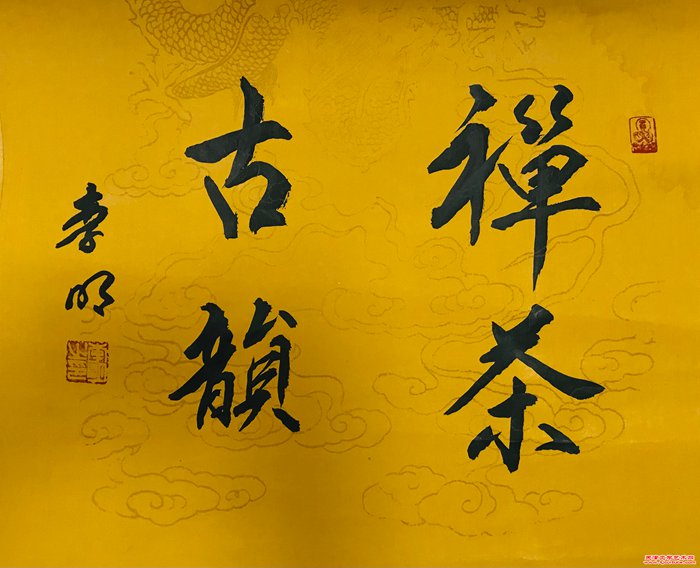 禪茶
古韻
李明